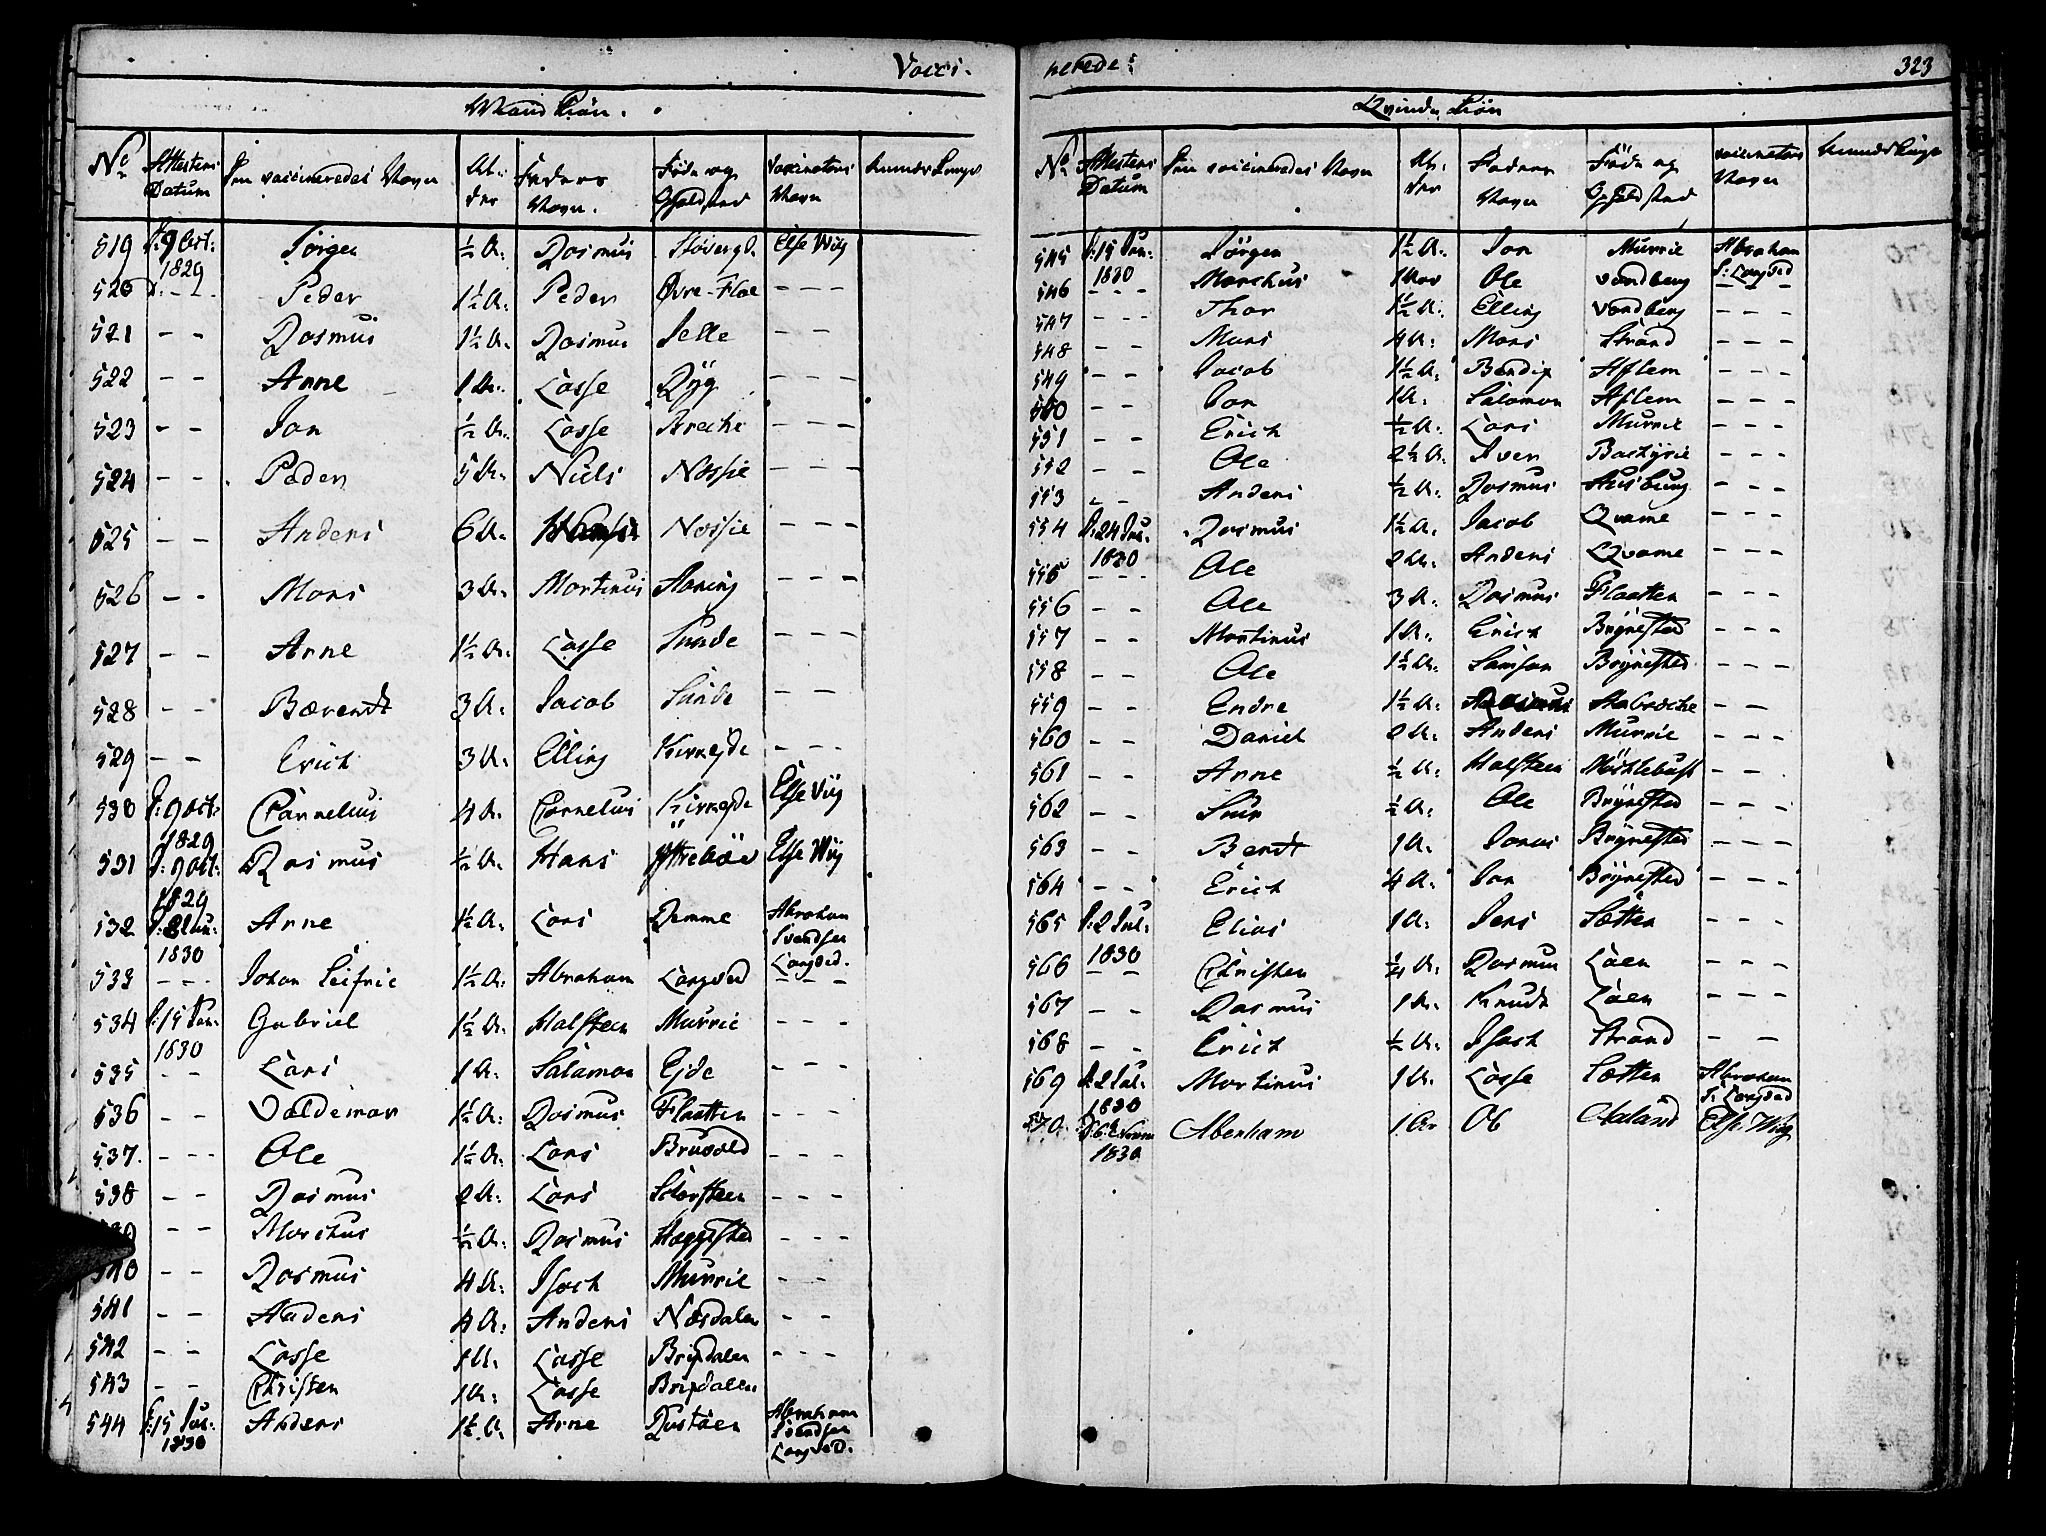 Vacci-
nerede.
323
Mand Kiøn.
Qvinde Kiøn
No Attestens Datum Den vaccineredes Navn Al-der Faders Navn. Føde og Opholdsted Vaccinatørs Navn Anmærkninger
519 d: 9 Oct: 1829 Jørgen ½ A: Rasmus Else Wiig
520 d: - - Peder 1½ A: Peder Øvre-Floe - - -
521 - - Rasmus 1½ A: Rasmus Jelle - -
522 - - Anne 1 A: Lasse Ryg - - -
523 - - Jon ½ A: Lasse Brecke - - -
524 - - Peder 5 A: Niels Nossie - - -
525 - - Anders 6 A: Nossie - - -
526 - - Mons 3 A: Martinus Aaning - - -
527 - - Arne 1½ A: Lasse Sunde - - -
528 - - Bærendt 3 A: Jacob Sunde - -
529 - - Erich 3 A: Elling Kirnejde - - -
530 d: 9 Oct: 1829 Cornelius 4 A: Cornelius Kirnejde Else Viig
531 d: 9 Oct: 1829 Rasmus ½ A: Hans Yttrebøe Else Wiig
532 1830 Arne 1½ A: Lars Ræmme Abraham Svendsen Langsed.
533 - - - Johan Leifric 1½ A: Abraham Langsed - - -
534 d: 15 Jun: 1830 Gabriel 1½ A: Halsteen Murrie - - -
535 - - Lars 1 A: Salamon Ejde - - -
536 - - Valdemar 1½ A: Rasmus Flaatten - - -
537. - - Ole 1½ A: Lars Brusæld - - -
538 - - Rasmus 2 A: Lars Schorsteen - - -
539 - - Marchus ½ A: Rasmus Haggestad - - -
540 - - Rasmus 4 A: Isach Murrie - -
541 - - Anders 4 A: Anders Næsdalen - -
542 - - Lasse 1 A: Lasse Brigdalen - - -
543 - - Christen 1 A: Lasse Brigdalen
544 d: 15 Jun: 1830 Anders 1½ A: Arne Rustøen Abraham Svendsen Langsed.
No Attestens Datum Den vaccineredes Navn Al-der Faders Navn Føde og Opholdsted vaccinatørs Navn Anmærkninger
545 d: 15 Jun: 1830 Jörgen 1½ A: Jon Murrie Abraham S: Langsed
546 - - - Marchus 1 Aar Ole Vandberg - - -
547 - - - Thor 1½ A: Elling Vandberg - - -
548 - - Mons 4 A: Mons Strand - - -
549 - - Jacob 1½ A: Bendix Aflem - - -
550 - - Jon 1 A: Salamon Aflem - - -
551 - - Erich ½ A: Lars Murrie - - -
552 - - Ole 2½ A: Iver - - -
553 - - Anders ½ A: Rasmus - - -
554 d: 24 Jun: 1830 Rasmus 1½ A: Jacob Qvame - - -
555 - - - Ole 2 A: Anders Qvame - - -
556 - - Ole 3 A: Rasmus Flaatten - - -
557 - - Martinus 1 A: Erich Brynestad - - -
558 - - Ole 1½ A: Samson Brynestad - - -
559 - - Endre 1½ A: Rasmus Aabræche - -
560 - - Daniel 2 A: Anders Murrie - - -
561 - - Anne ½ A: Halsteen Myklebust - -
562 - - ½ A: Ole Brynestad - - -
563 - - Berdt 1 A: Jonas Brynestad - - -
564 - - Erich 4 A: Jon Brynestad - - -
565 d: 2 Jul: 1830 Elias 1 A: Jens Sætten - - -
566 - - Christen ¼ A: Rasmus Loen - - -
567 - - Rasmus 1 A: Knudt Loen - - -
568 - - Erich ½ A: Isach Strand - -
569 d: 2 Jul: 1830 Martinus 1 A: Lasse Sætten Abraham S: Langsed
570. 1830 Aberham 1 Aar Ol Aaland Else Wiig